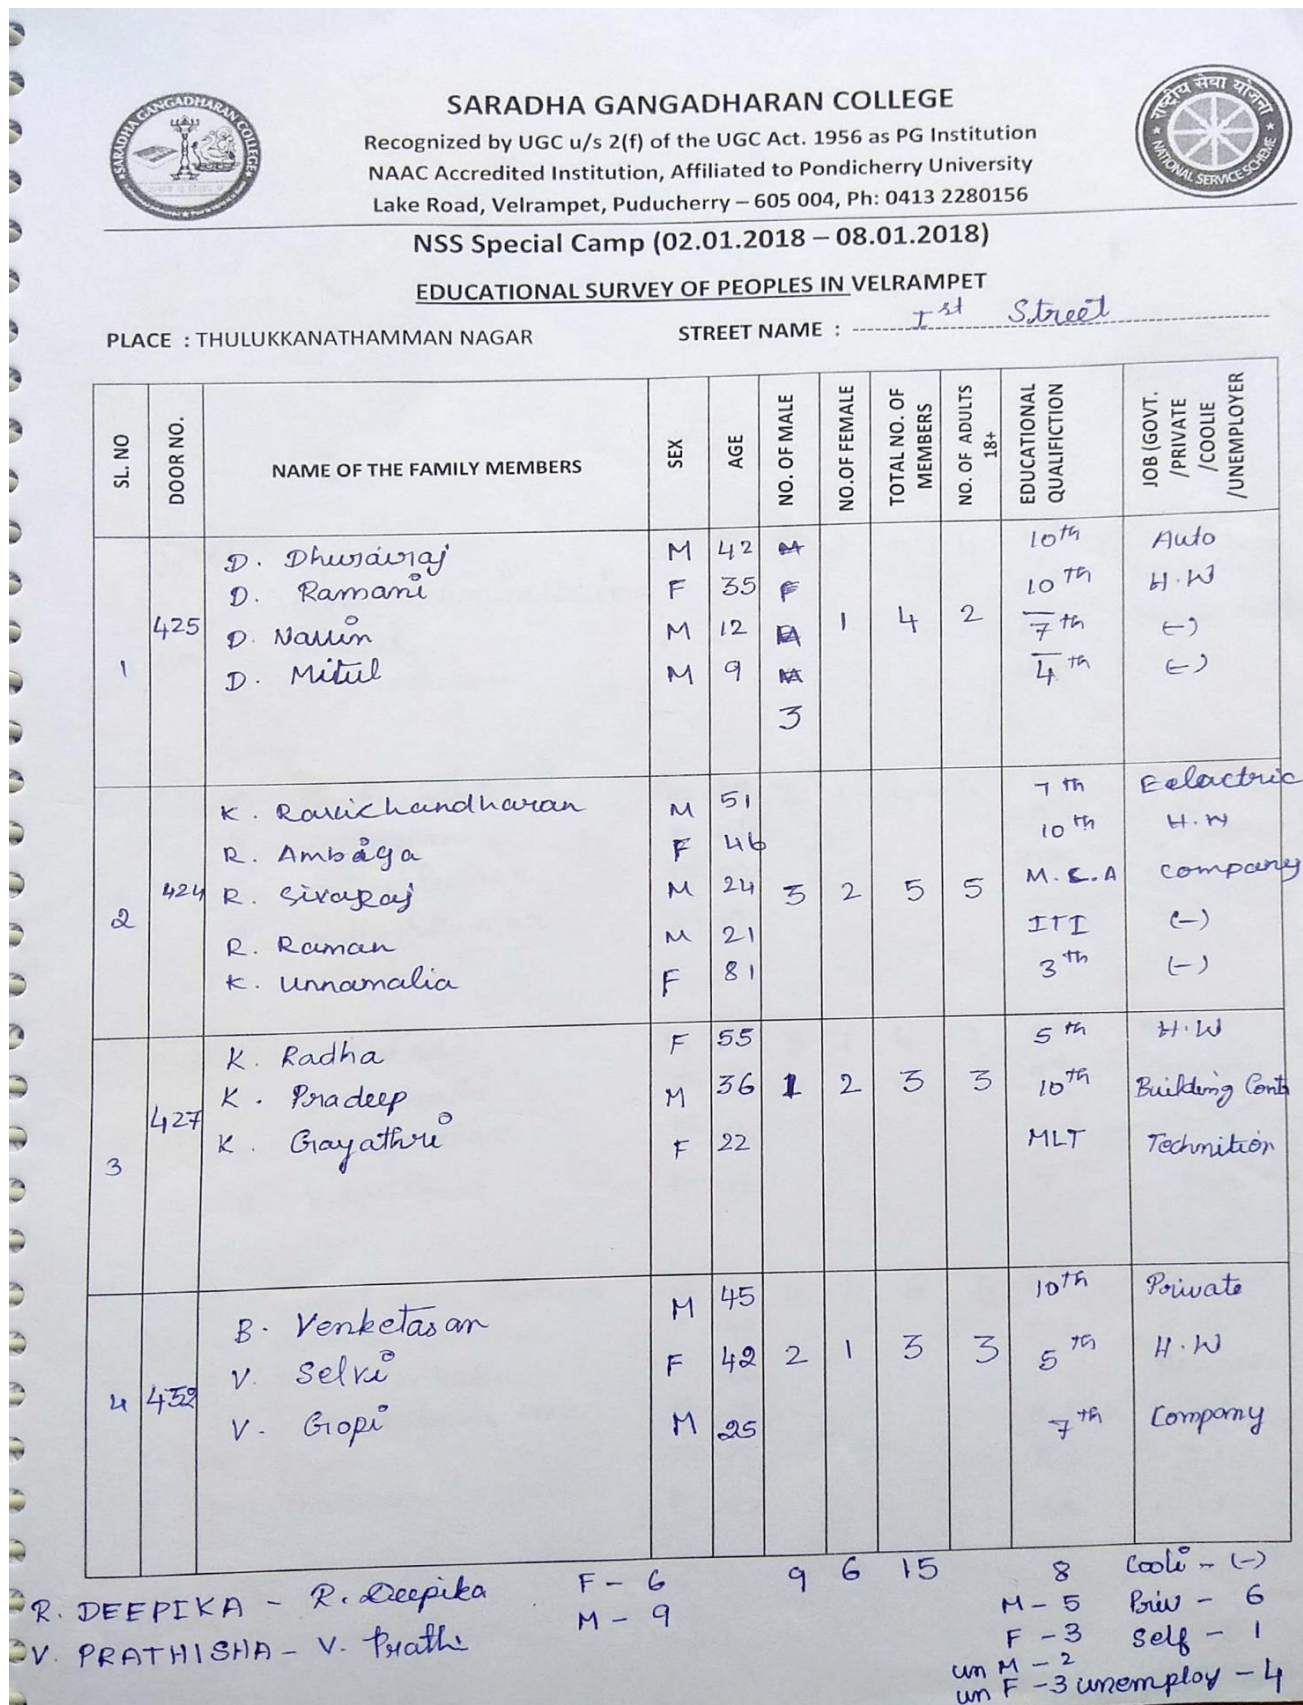 SARADHA GANGADHARAN COLLEGE
Recognized by UGC u/s 2(f) of the UGC Act. 1956 as PG Institution
NAAC Accredited Institution, Affiliated to Pondicherry University
Lake Road, Velrampet, Puducherry – 605 004, Ph: 0413 2280156
SARADHA GANGADHARAN COLLEGE
राष्ट्रीय सेवा योजना
NATIONAL SERVICE SCHEME
NSS Special Camp (02.01.2018 – 08.01.2018)
EDUCATIONAL SURVEY OF PEOPLES IN VELRAMPET
PLACE : THULUKKANATHAMMAN NAGAR STREET NAME : Ist Street
SL. NO DOOR NO. NAME OF THE FAMILY MEMBERS SEX AGE NO. OF MALE NO.OF FEMALE TOTAL NO. OF MEMBERS NO. OF ADULTS 18+ EDUCATIONAL QUALIFICTION JOB (GOVT. /PRIVATE /COOLIE /UNEMPLOYER
D. Dhurairaj M 42 M 10th Auto
D. Ramani F 35 F 10th H.W
1 425 D. Navin M 12 1 4 2 7th (-)
D. Mitul M 9 M 4th (-)
3
K. Ravichandharan M 51 7th Eelactric
R. Ambiga F 46 10th H.W
2 424 R. Sivaraj M 24 3 2 5 5 M.C.A company
R. Raman M 21 ITI (-)
K. Unnamalia F 81 3th (-)
K. Radha F 55 5th H.W
K. Pradeep M 36 1 2 3 3 10th Building Cont
3 427 K. Gayathri F 22 MLT Technition
B. Venketasan M 45 10th Private
V. Selvi F 42 2 1 3 3 5th H.W
4 452 V. Gopi M 25 7th Company
9 6 15 8 Cooli - (-)
R. DEEPIKA - R. Deepika F - 6 M - 5 Priv - 6
V. PRATHISHA - V. Prathi M - 9 F - 3 Self - 1
un M - 2
un F - 3 unemploy - 4